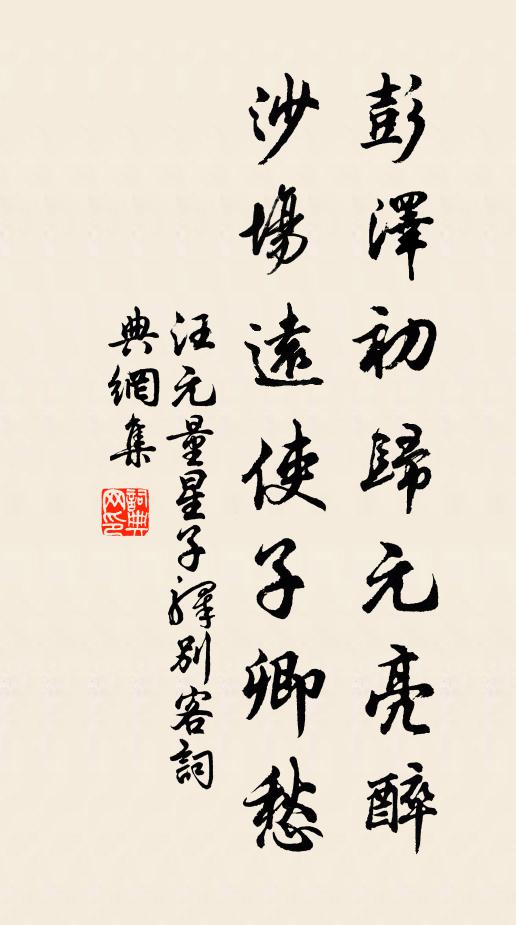 彭澤初歸元亮醉
沙場遠使子卿愁
汪元量星子驛別客詞
典網集
詞典網印